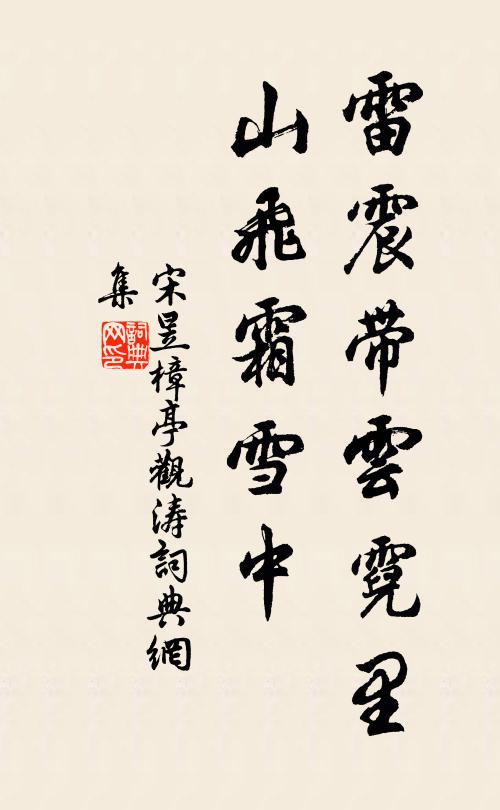 雷震带雲霓里
山飛霜雪中
宋昱樟亭觀涛詞典網
集
詞典
网印